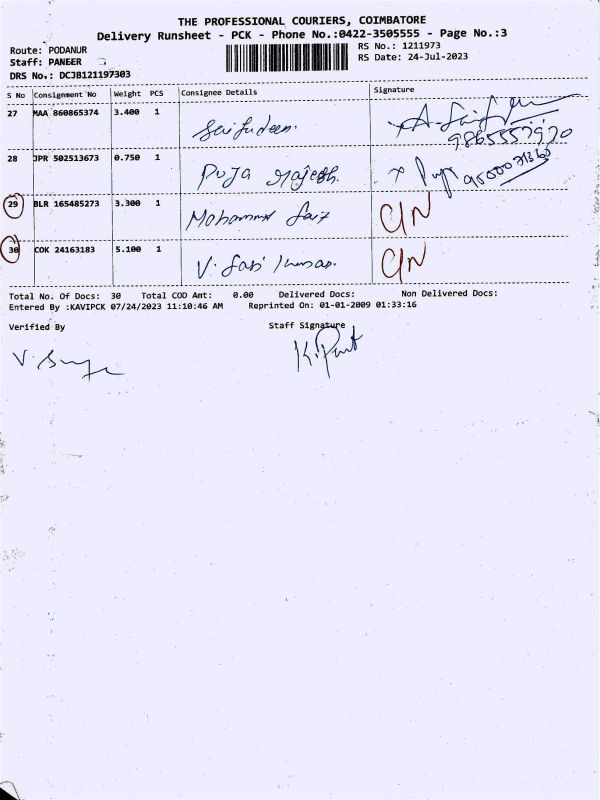 THE PROFESSIONAL COURIERS, COIMBATORE
Delivery Runsheet - PCK - Phone No.:0422-3505555 - Page No.:3
Route: PODANUR
RS No.: 1211973
Staff: PANEER
RS Date: 24-Jul-2023
DRS No.: DCJB121197303
S No Consignment No Weight PCS Consignee Details Signature
27 MAA 860865374 3.400 1 Seifudeen.
28 JPR 502513673 0.750 1 Puja Rajesh.
29 BLR 165485273 3.300 1 Mohammed Saif C/N
30 COK 24163183 5.100 1 V. Sasi Kumar. C/N
Total No. Of Docs: 30 Total COD Amt: 0.00 Delivered Docs: Non Delivered Docs:
Entered By :KAVIPCK 07/24/2023 11:10:46 AM Reprinted On: 01-01-2009 01:33:16
Verified By Staff Signature